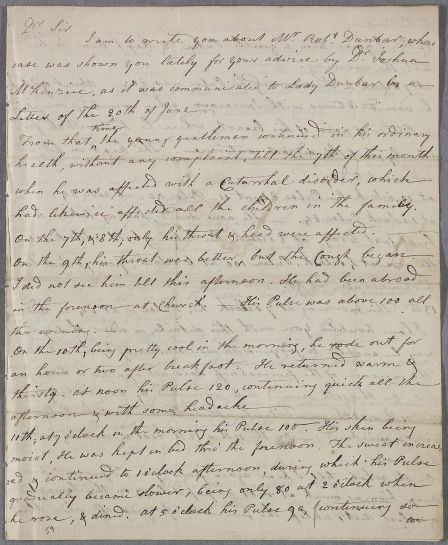 Dr Sir
I am to write you about Mr Robt Dunbar, whose
case was shown you lately for your advice by Dr Joshua
McKenzie, as it was communicated to Lady Dunbar in a
Letter of the 20th of June.
From that time, the young gentleman continued in his ordinary
health, without any complaint, till the 7th of this month
when he was affected with a Catarrhal disorder, which
had likewise affected all the children in the family.
On the 7th, & 8th, only his throat & head were affected.
On the 9th, his throat was better, but the Cough began
I did not see him till this afternoon. He had been abroad
in the forenoon at Church. His Pulse was above 100 all
the evening.
On the 10th, being pretty cool in the morning, he rode out for
an hour or two after breakfast. He returned warm &
thirsty. at noon his Pulse 120, continuing quick all the
afternoon & with some headache.
11th, at 7 o'clock in the morning his Pulse 100. His skin being
moist, He was kept in bed thro' the forenoon. The sweat increas
ed & continued to 1 o'clock afternoon, during which his Pulse
gradually became slower, being only 80 at 2 o'clock when
he rose, & dined. at 5 o'clock his Pulse 92, continuing so